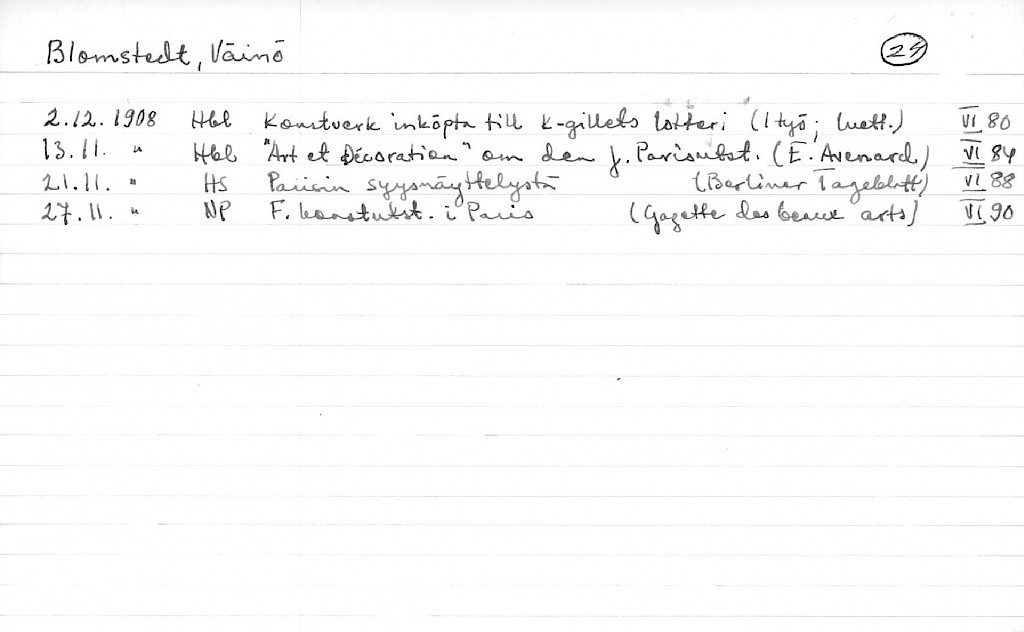 Blomstedt, Väinö 24
2.12.1908 Hbl Konstverk inköpta till K-gillets lotteri (1 työ; luett.) VI 80
13.11. " Hbl "Art et Décoration" om den f. Parisutst. (E. Avenard) VI 84
21.11. " HS Pariisin syysnäyttelystä (Berliner Tageblatt) VI 88
27.11. " NP F. konstutst. i Paris (Gazette des beaux arts) VI 90